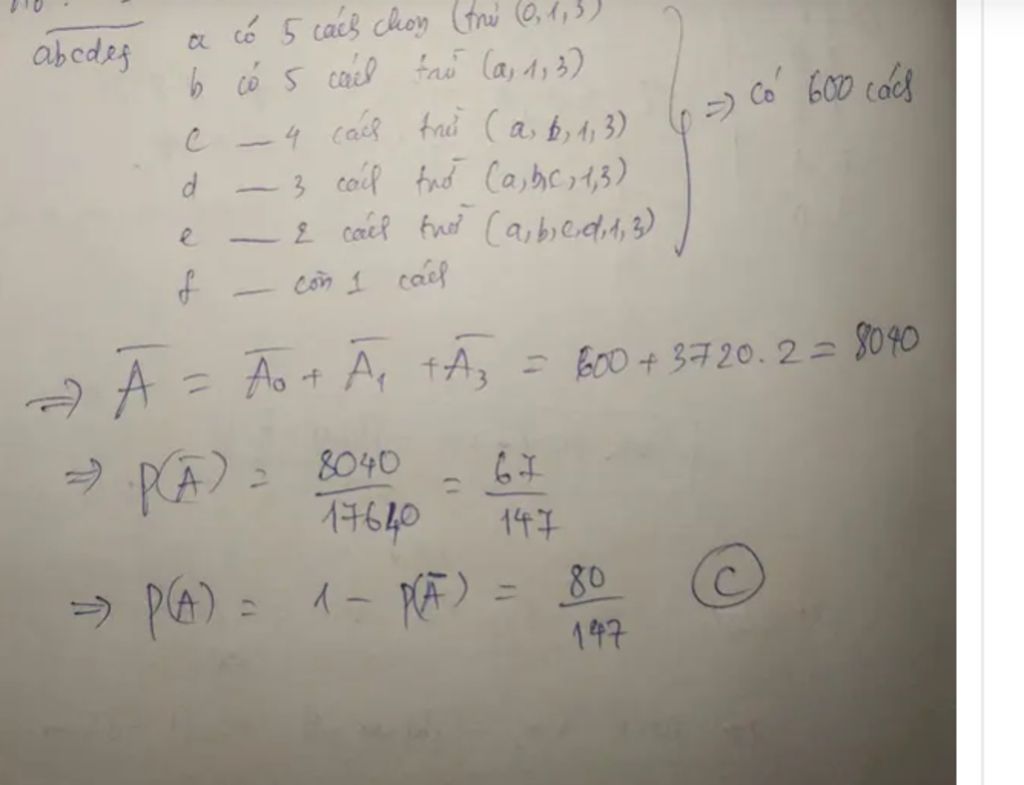 abcdef a có 5 cách chọn (trừ (0,1,3)
b có 5 cách trừ (a,1,3)
c — 4 cách trừ (a,b,1,3)
d — 3 cách trừ (a,b,c,1,3)
e — 2 cách trừ (a,b,c,d,1,3)
f — còn 1 cách
=> có 600 cách
=> A̅ = A̅₀ + A̅₁ + A̅₃ = 600 + 3720.2 = 8040
=> P(A̅) = 8040/17640 = 67/147
=> P(A) = 1 - P(A̅) = 80/147 C